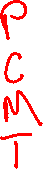 P
C
M
T